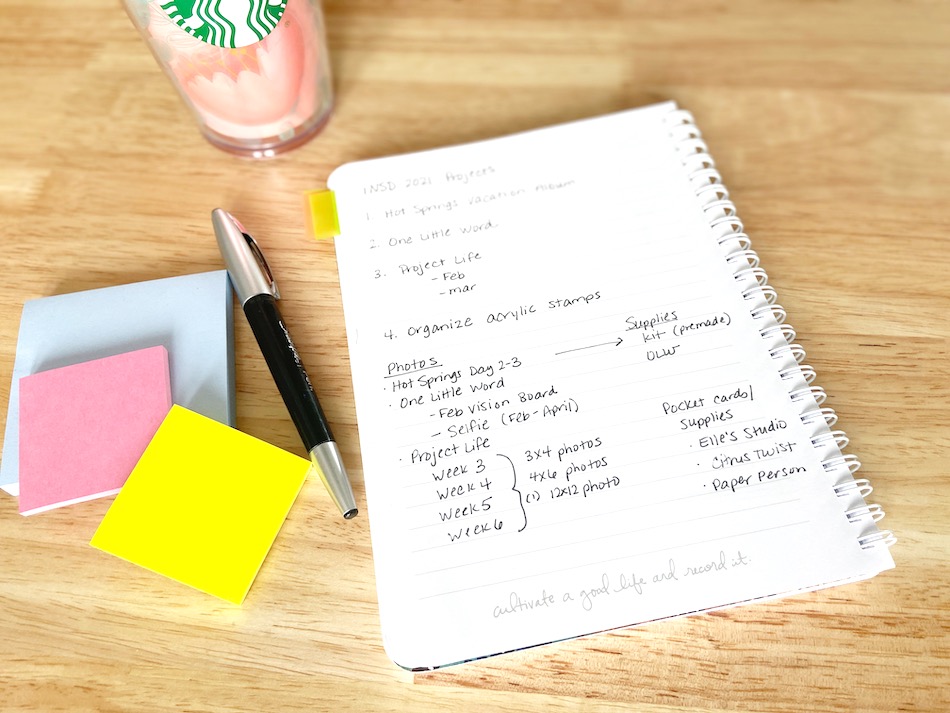 INSD 2021 Projects
1. Hot Springs Vacation Album
2. One Little Word
3. Project Life
- Feb
- mar
4. Organize acrylic stamps
Photos
· Hot Springs Day 2-3
· One Little Word
- Feb Vision Board
- Selfie (Feb-April)
· Project Life
Week 3
Week 4
Week 5
Week 6
3x4 photos
4x6 photos
(1) 12x12 photo
Supplies
Kit (premade)
OLW
Pocket cards/
supplies
· Elle's Studio
· Citrus Twist
· Paper Person
cultivate a good life and record it.